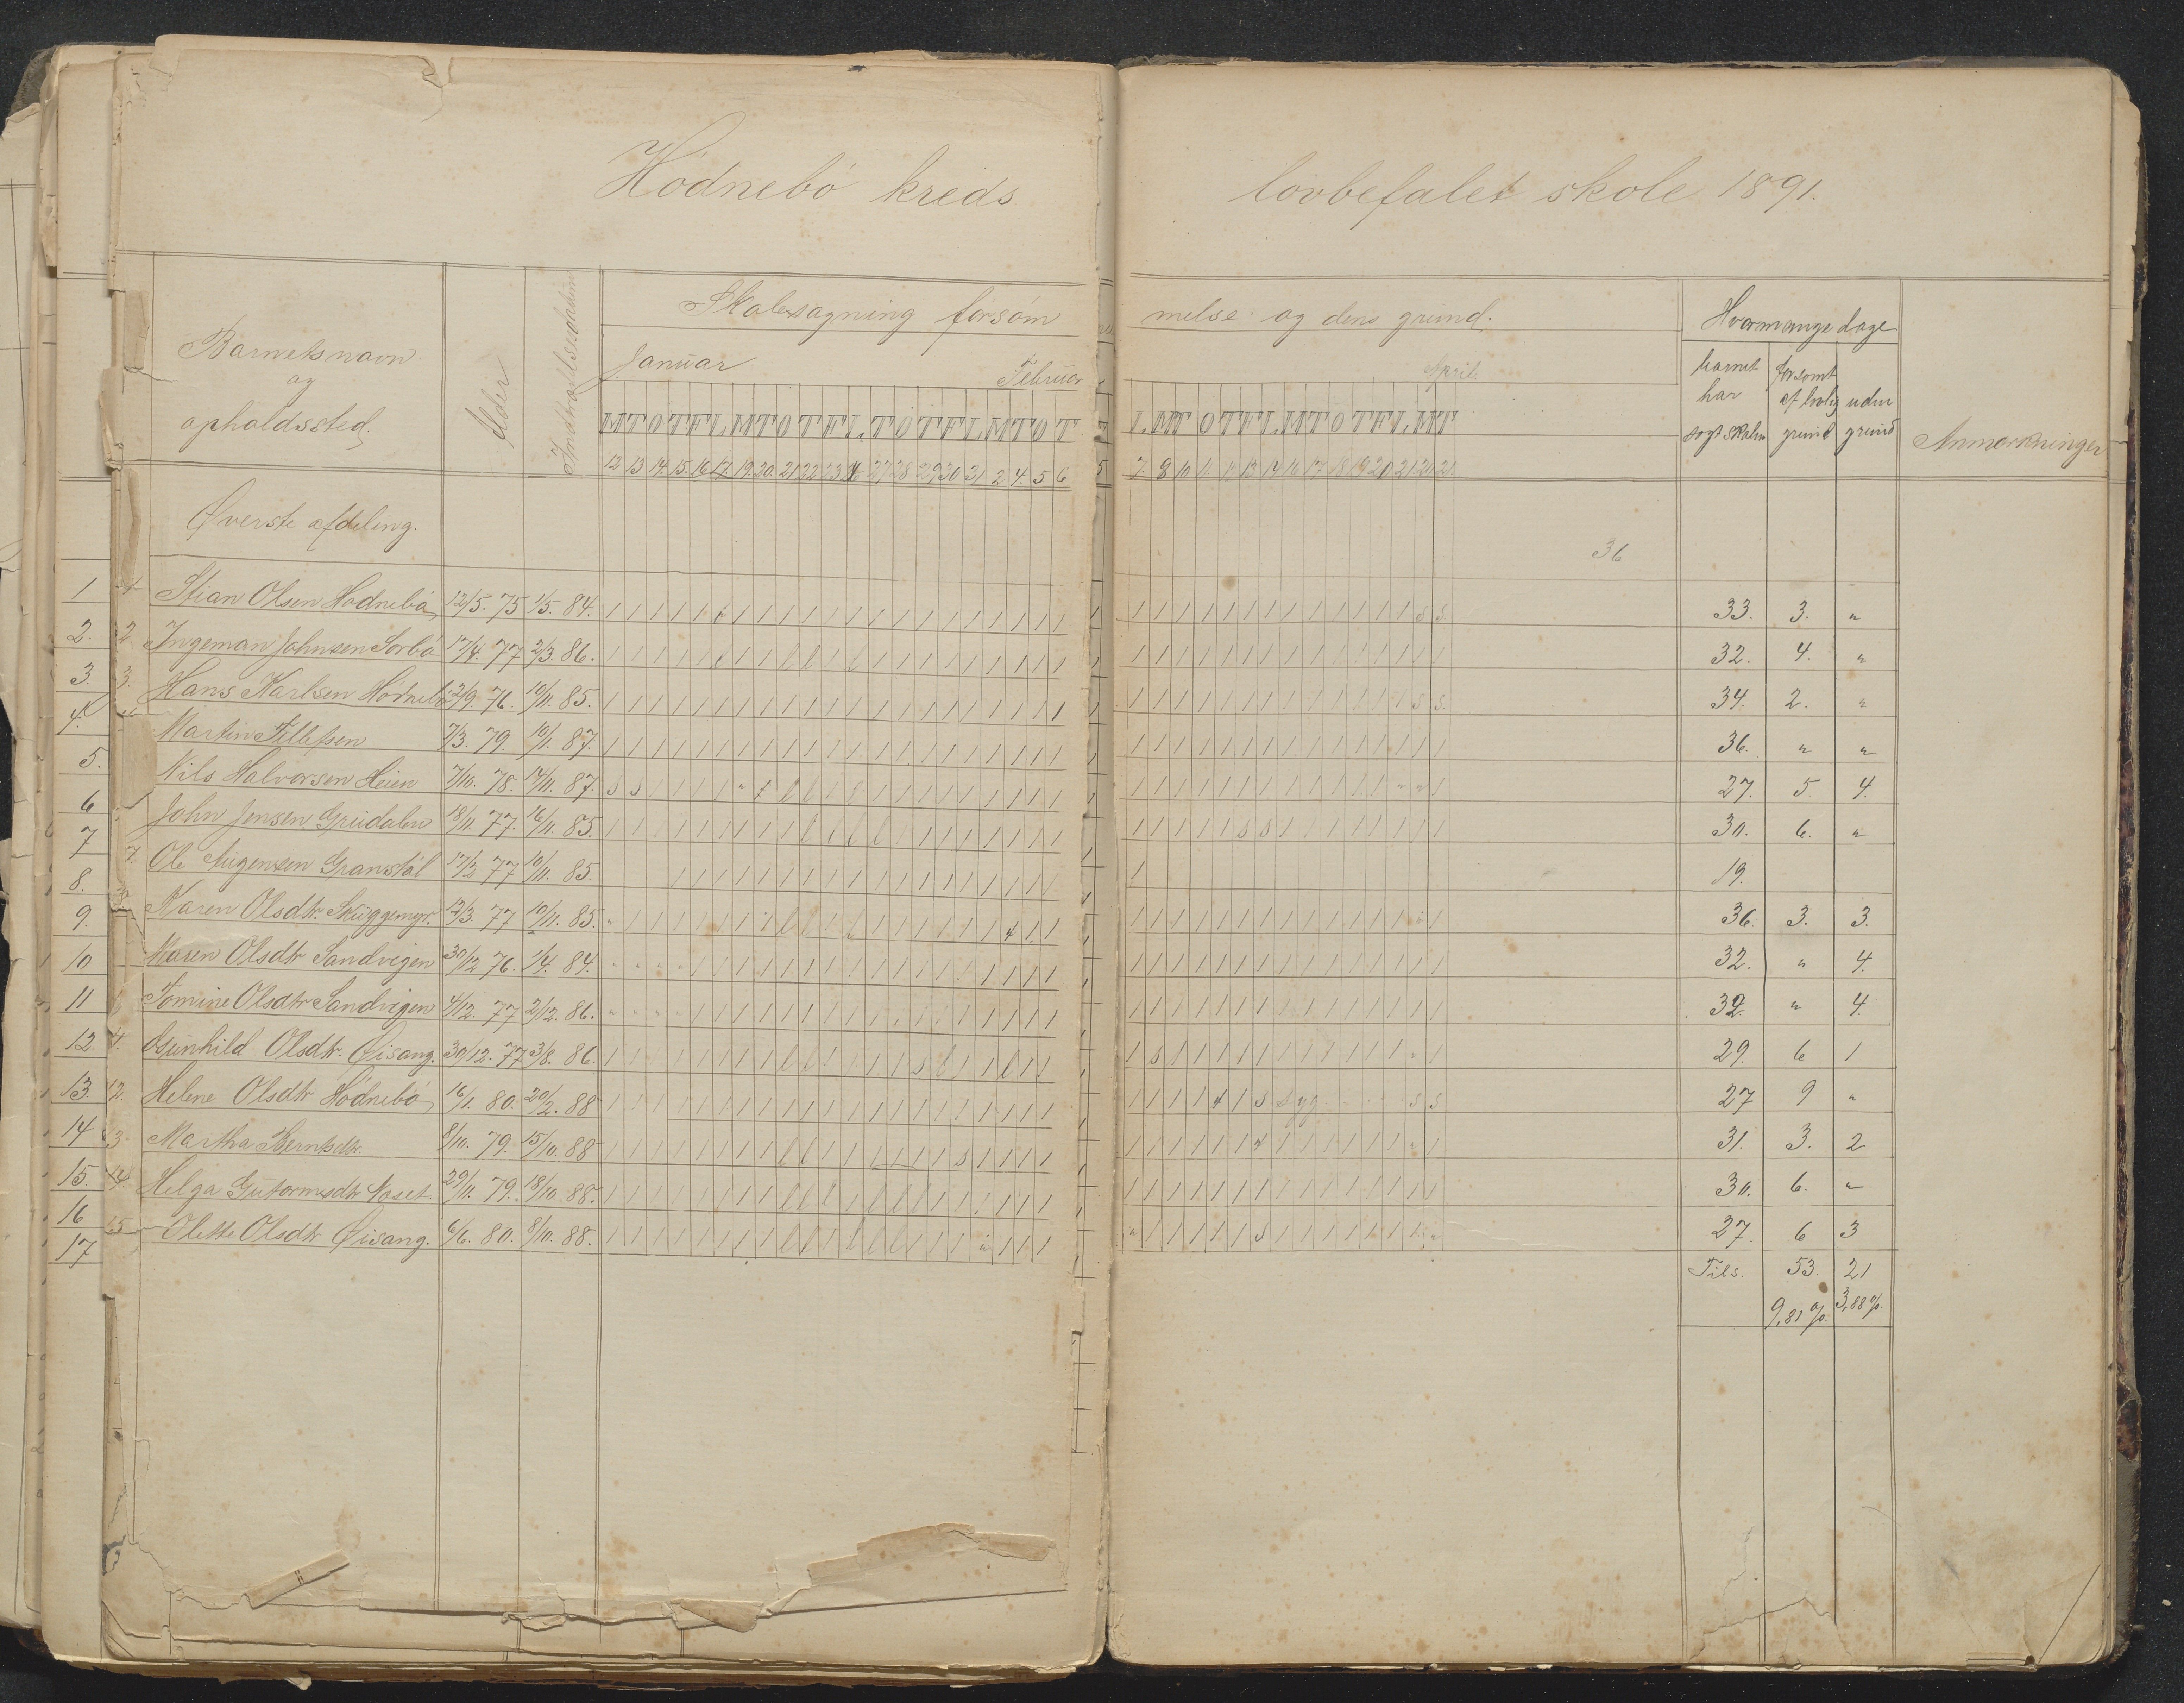 Hódnebó kreds lovbefalet skole 1891.
Barnets navn og opholdssted. Alder Indtrædelsesdatum Skolesøgning forsóm melse og dens grund. Hvormange dage
Januar Februar April barnet har søgt skolen forsømt af lovlig grund uden grund Anmærkninger
M T O T F L M T O T F L T O T F L M T O T L M T O T F L M T O T F L M T
12 13 14. 15. 16 17 19 20 21 22 23 24 27 28 29 30 31 2 4. 5 6 7 8 10 11 13 14 16 17 18 19 20 21
Øverste afdeling. 36
1 Stian Olsen Hódnebó 12/5. 75 1/5. 84. 33. 3. "
2. 2. Ingeman Johnsen Sorbó 17/4. 77 2/3. 86. 32. 4. "
3. 3. Hans Karlsen Hódnebó 2/9. 76. 10/11. 85. 34. 2. "
4. Martin Tellefsen 7/3. 79. 10/1. 87. 36. " "
5. Nils Halvorsen Heien 7/10. 78. 14/11. 87. 27. 5 4.
6 John Jensen Grúdalen 18/11. 77. 16/11. 85. 30. 6. "
7 7. Ole Aúgensen Granstól 17/2 77 10/11. 85. 19.
8. Karen Olsdtr. Skúggemyr. 12/3. 77 10/11. 85. 36. 3. 3.
9. Maren Olsdtr Sandvigen 30/12 76. 1/4. 84. 32. " 4.
10 Tomine Olsdtr Sandvigen 4/12. 77 2/12. 86. 32. " 4.
11 Gúnhild Olsdtr. Øisang. 30/12. 77 3/8. 86. 29. 6 1
12. Helene Olsdtr Hódnebó 16/1. 80. 20/2. 88 syg 27 9 "
13. 12. Martha Berntsdtr. 8/10. 79. 15/10. 88 31. 3. 2
14 13 Helga Gútormsdtr Moset 29/11. 79. 18/10. 88. 30. 6. "
15. 14. Olette Olsdtr Øisang. 6/6. 80. 8/10. 88. 27. 6 3
16 15
17
Tils. 53. 21
9,81 %. 3,88 %.